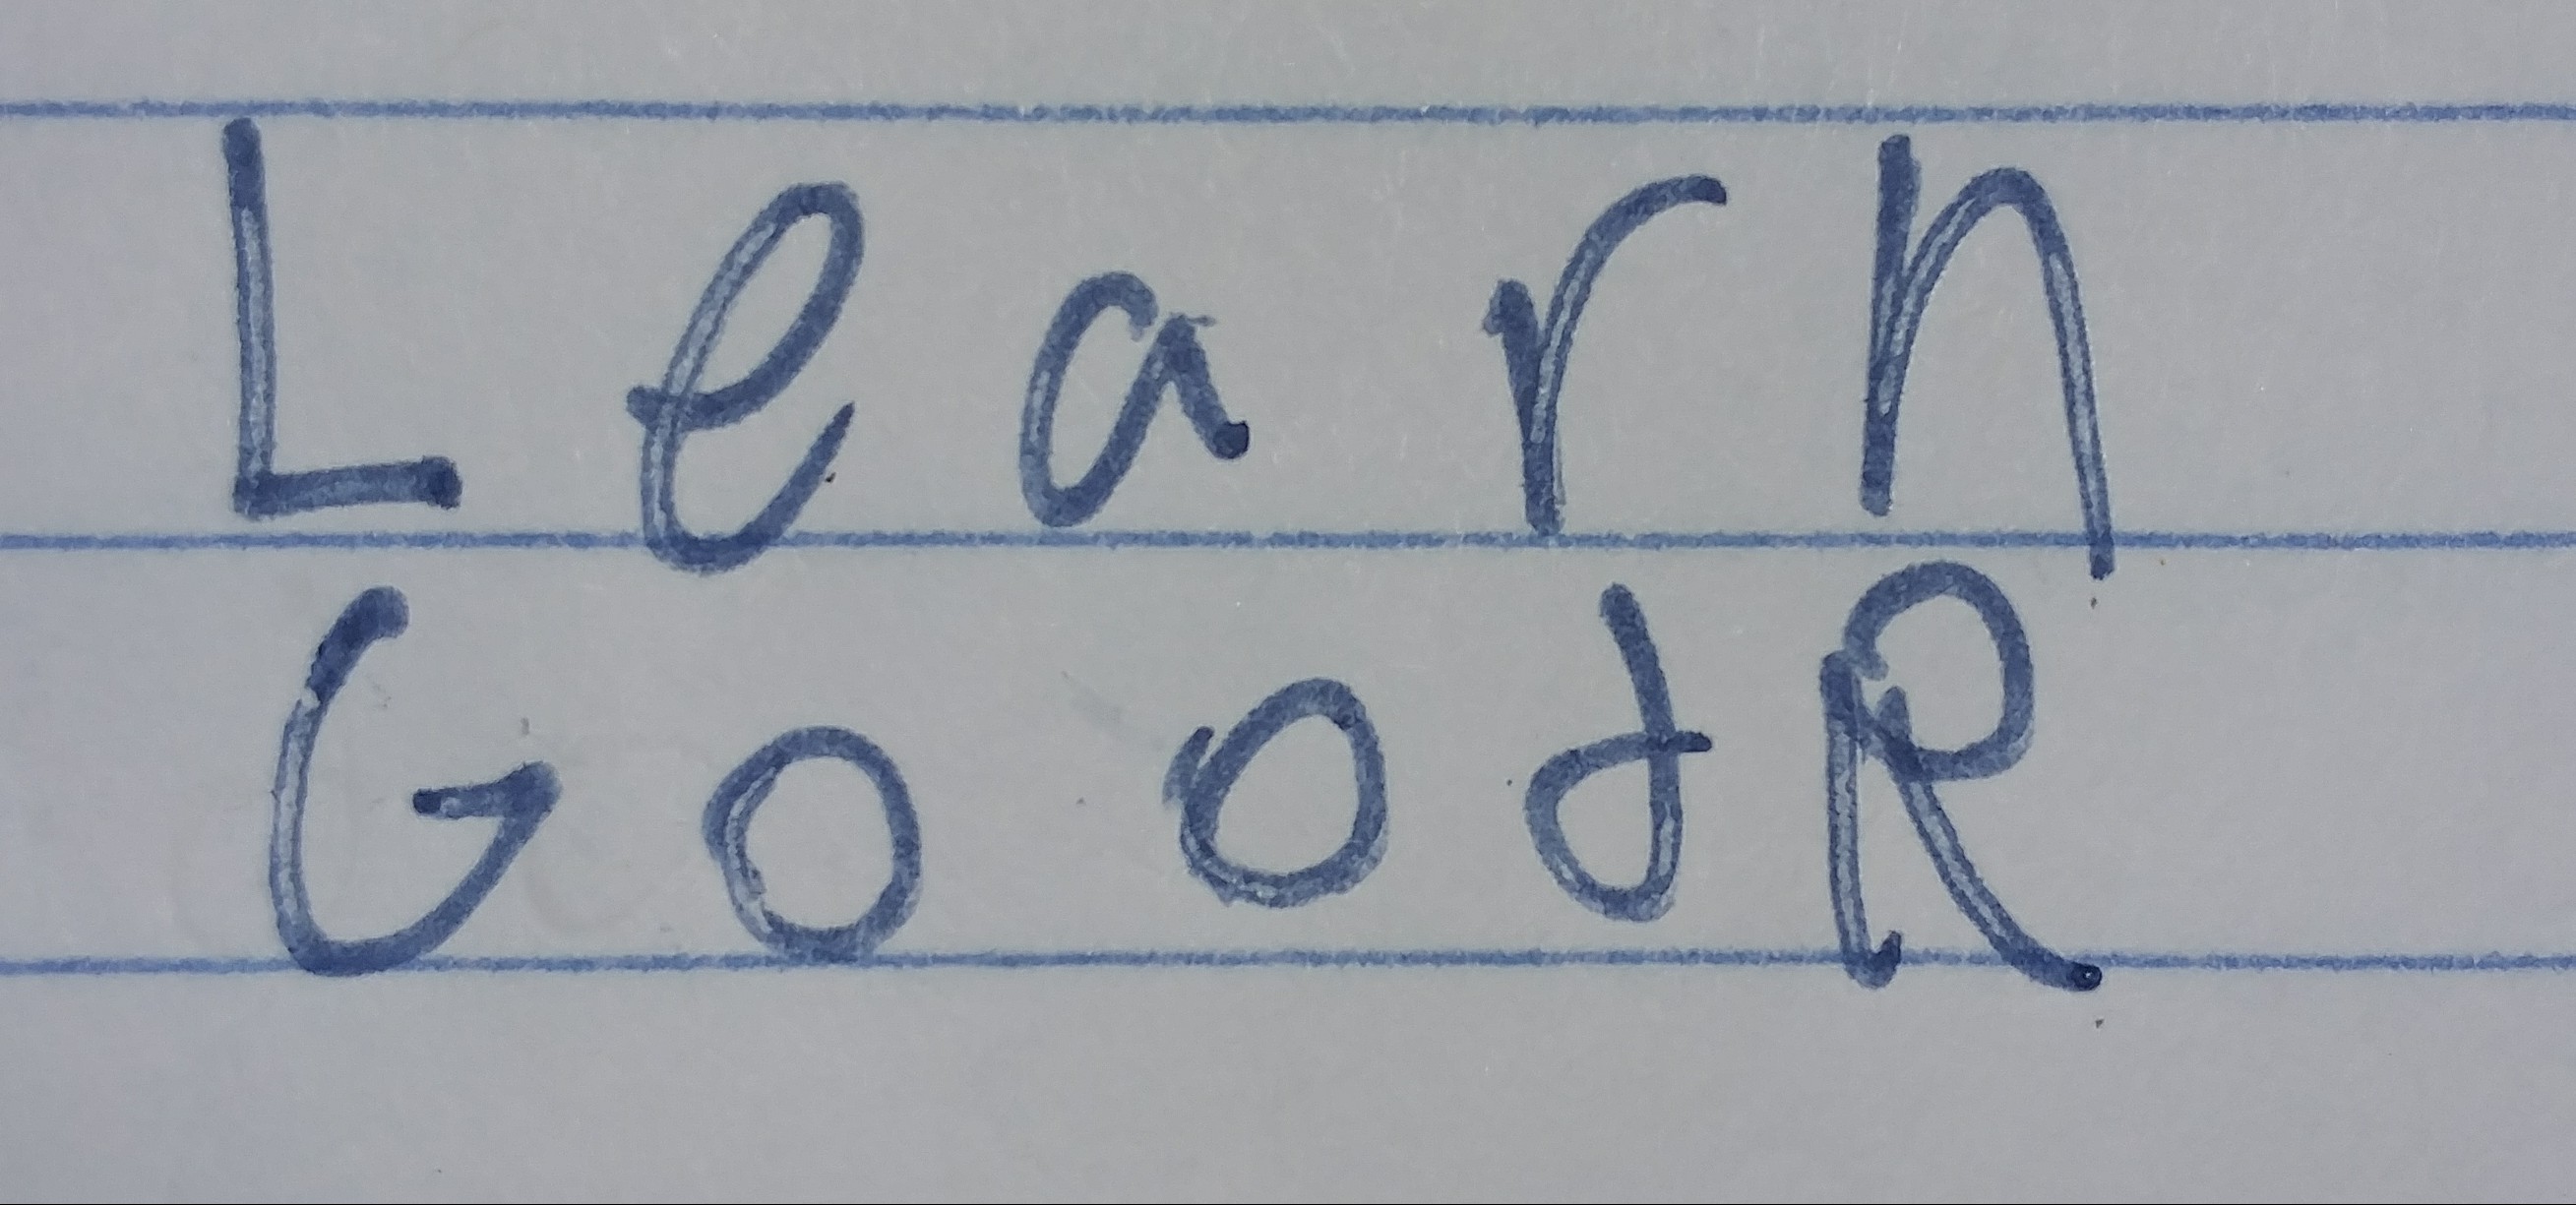 Learn
GoodR